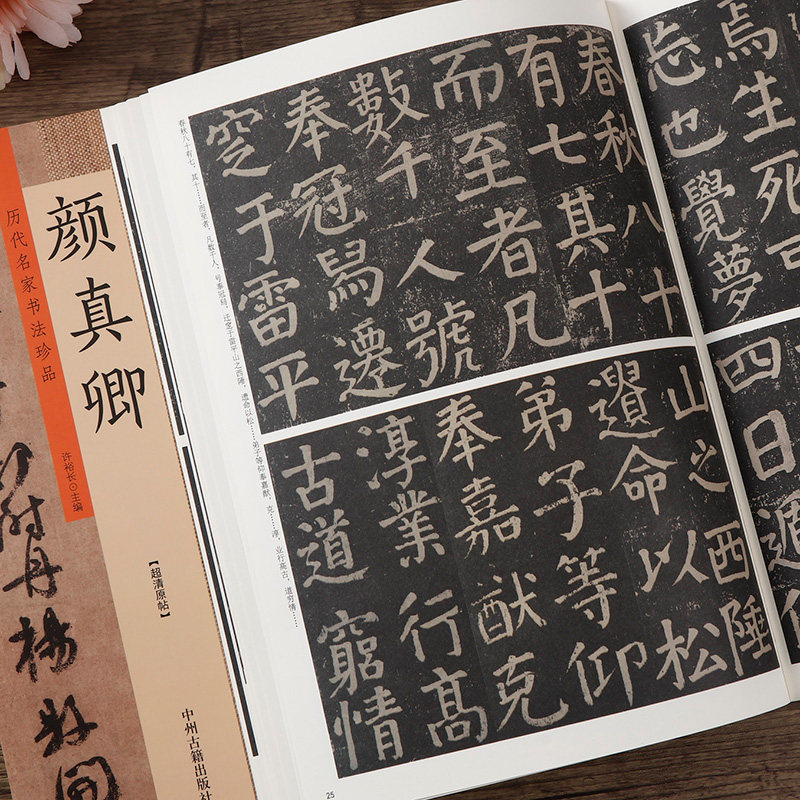 历代名家书法珍品
颜真卿
许裕长⊙主编
【超清原帖】
中州古籍出版社
丹楊縣開
焉生死
忘也覺夢
四日
春秋八十
有七其十
而至者凡
數千人號
奉冠舄遷
窆于雷平
山之西陲
遺命以松
弟子等仰
奉嘉猷克
淳業行高
古道窮情
春秋八十有七，其十……而至者，凡数千人，号奉冠舄，迁窆于雷平山之西陲，遗命以松……弟子等仰奉嘉猷，克……淳，业行高古，道穷情……
25